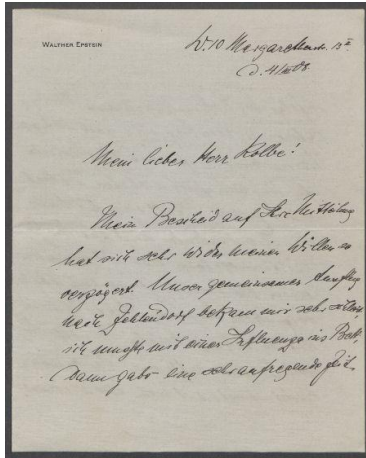 WALTHER EPSTEIN
W. 10 Margarethenstr. 13 II
d. 4/XII 08.
Mein lieber Herr Kolbe!
Mein Bescheid auf Ihre Mittheilung
hat sich sehr wider meinen Willen so
verzögert. Unser gemeinsamer Ausflug
nach Zehlendorf bekam mir sehr schlecht
ich musste mit einer Influenza ins Bett.
Dann gabs eine sehr aufregende Zeit.